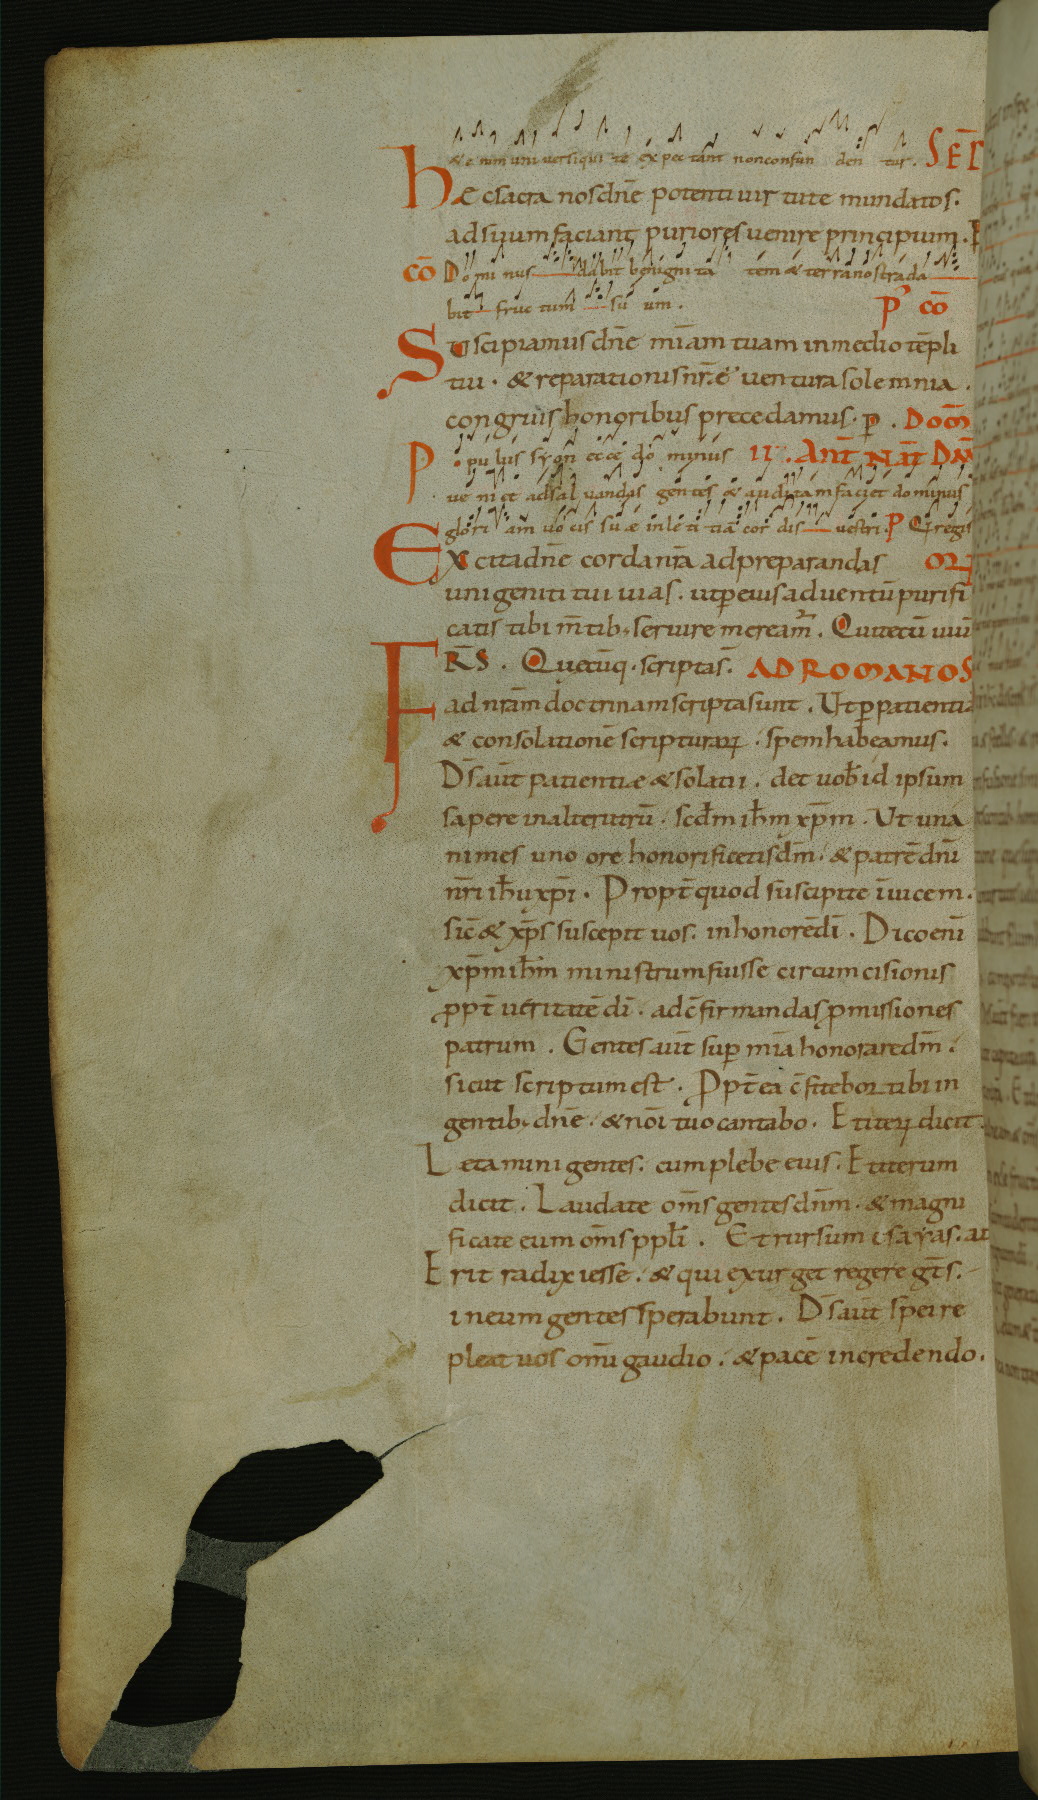 &enim uniuersi qui te expectant non confun den tur. SEĒ
Hæc sacra nos dn̄e potenti uirtute mundatos.
ad suum faciant puriores uenire principium.
cō Dominus dabit benignita tem & terra nostra da
bit fructum su um. P' cō
Suscipiamus dn̄e mīam tuam in medio tēpli
tui. & reparationis nr̄ę uentura solemnia.
congruis honoribus precedamus. P. Dom̄
Populus syon ecce dominus II. Ant̄ Nat̄ Dn̄i
ueniet ad saluandas gentes & auditam faciet dominus
gloriam uocis suæ in letitia cordis uestri. P Qui regis
Excita dn̄e corda nr̄a ad preparandas OR
unigeniti tui uias. ut p eius aduentū purifi
catis tibi m̄tib; seruire mereamr̄. Qui tecū uiui
FRS. Quecūq. scripta s̄. AD ROMANOS
ad nr̄am doctrinam scripta sunt. Ut p patientia
& consolationē scripturarꝝ. spem habeamus.
D̄s aūt patientiæ & solatii. det uob̄ id ipsum
sapere in alterutrū. scd̄m ih̄m xp̄m. Ut una
nimes uno ore honorificetis dm̄. & patrē dn̄i
nr̄i ih̄u xp̄i. Propt̄ quod suscipite īuicem.
sic̄ & xp̄s suscepit uos. in honorē dī. Dico enī
xp̄m ih̄m ministrum fuisse circumcisionis
ppt̄ ueritatē dī. ad c̄firmandas pmissiones
patrum. Gentes aūt sup mīa honorare dm̄.
sicut scriptum est. Ppt̄ea c̄fitebor tibi in
gentib; dn̄e. & nōi tuo cantabo. Et iterꝝ dicit.
Lætamini gentes. cum plebe eius. Et iterum
dicit. Laudate om̄s gentes dn̄m. & magni
ficate eum om̄s ppl̄i. Et rursum isayas. ait
Erit radix iesse. & qui exurget regere gt̄s.
in eum gentes sperabunt. D̄s aūt spei re
pleat uos om̄i gaudio. & pacē in credendo.